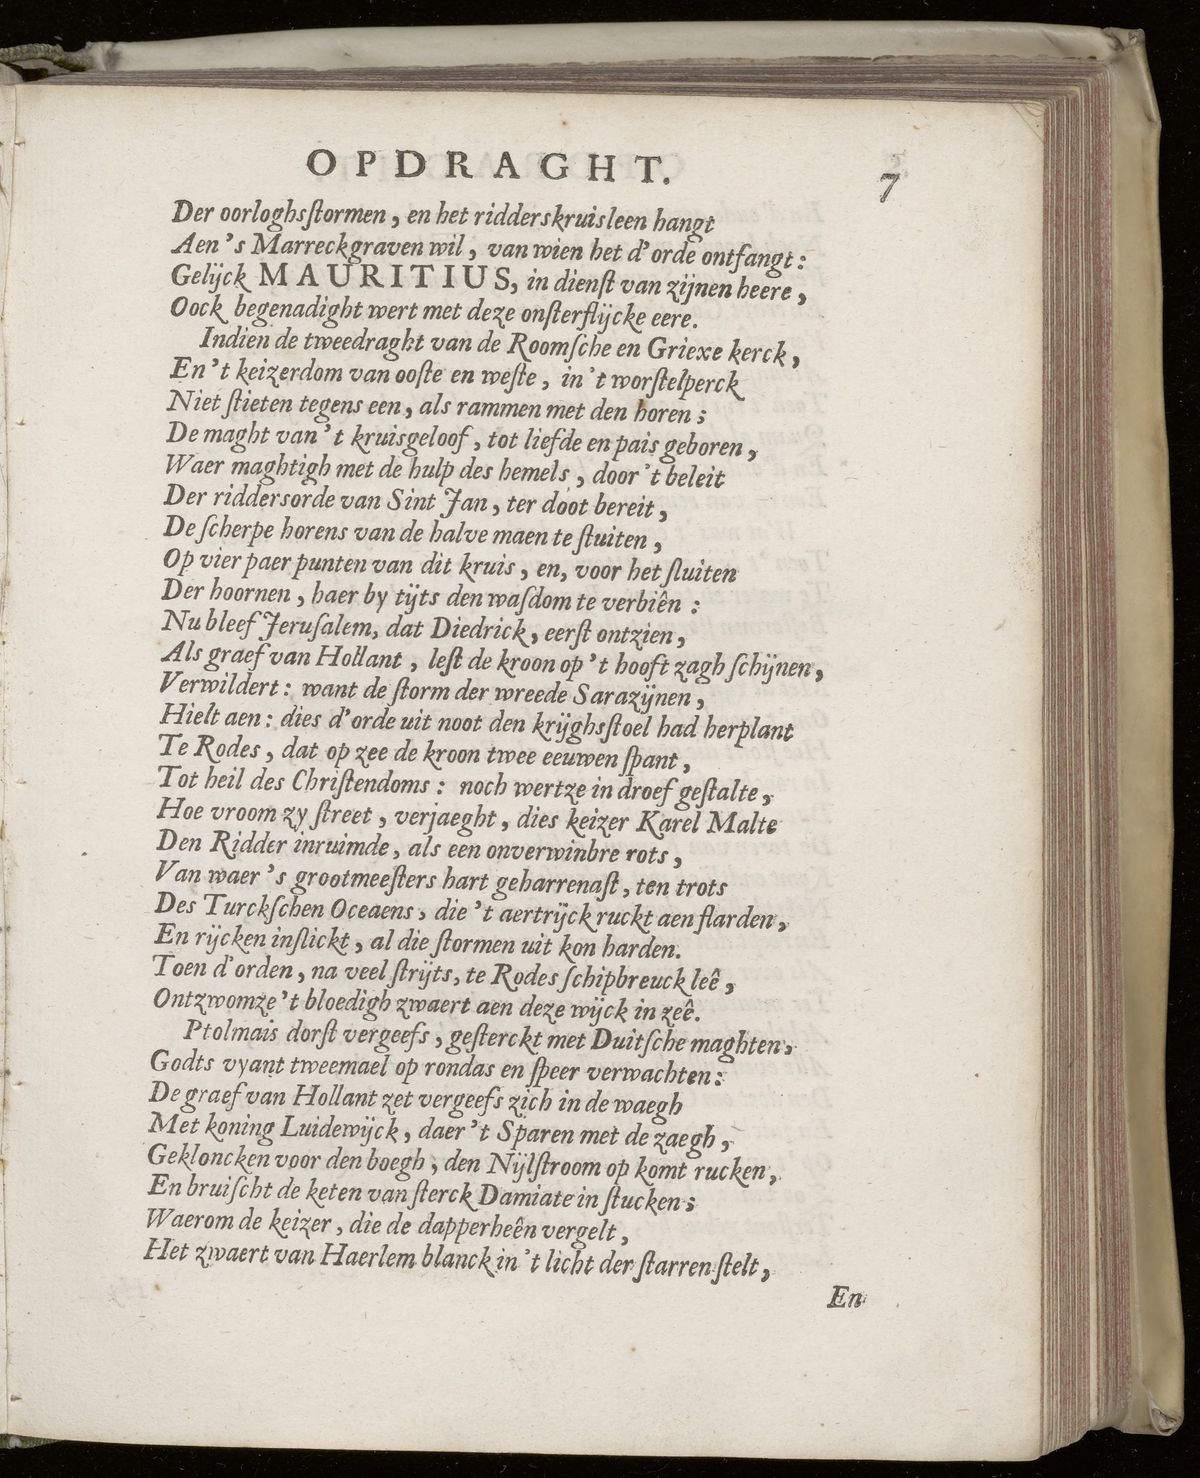 OPDRAGHT. 7
Der oorloghsſtormen, en het ridderskruisleen hangt
Aen 's Marreckgraven wil, van wien het d' orde ontfangt:
Gelijck MAURITIUS, in dienſt van zijnen heere,
Oock begenadight wert met deze onſterflijcke eere.
Indien de tweedraght van de Roomſche en Griexe kerck,
En 't keizerdom van ooſte en weſte, in 't worſtelperck
Niet ſtieten tegens een, als rammen met den horen;
De maght van 't kruisgeloof, tot liefde en pais geboren,
Waer maghtigh met de hulp des hemels, door 't beleit
Der riddersorde van Sint Jan, ter doot bereit,
De ſcherpe horens van de halve maen te ſtuiten,
Op vier paer punten van dit kruis, en, voor het ſluiten
Der hoornen, haer by tijts den waſdom te verbiên:
Nu bleef Jeruſalem, dat Diedrick, eerſt ontzien,
Als graef van Hollant, leſt de kroon op 't hooft zagh ſchijnen,
Verwildert: want de ſtorm der wreede Sarazijnen,
Hielt aen: dies d' orde uit noot den krijghsſtoel had herplant
Te Rodes, dat op zee de kroon twee eeuwen ſpant,
Tot heil des Chriſtendoms: noch wertze in droef geſtalte,
Hoe vroom zy ſtreet, verjaeght, dies keizer Karel Malte
Den Ridder inruimde, als een onverwinbre rots,
Van waer 's grootmeeſters hart geharrenaſt, ten trots
Des Turckſchen Oceaens, die 't aertrijck ruckt aen flarden,
En rijcken inſlickt, al die ſtormen uit kon harden.
Toen d' orden, na veel ſtrijts, te Rodes ſchipbreuck leê,
Ontzwomze 't bloedigh zwaert aen deze wijck in zeê.
Ptolmais dorſt vergeefs, geſterckt met Duitſche maghten,
Godts vyant tweemael op rondas en ſpeer verwachten:
De graef van Hollant zet vergeefs zich in de waegh
Met koning Luidewijck, daer 't Sparen met de zaegh,
Gekloncken voor den boegh, den Nijlſtroom op komt rucken,
En bruiſcht de keten van ſterck Damiate in ſtucken;
Waerom de keizer, die de dapperheên vergelt,
Het zwaert van Haerlem blanck in 't licht der ſtarren ſtelt,
En